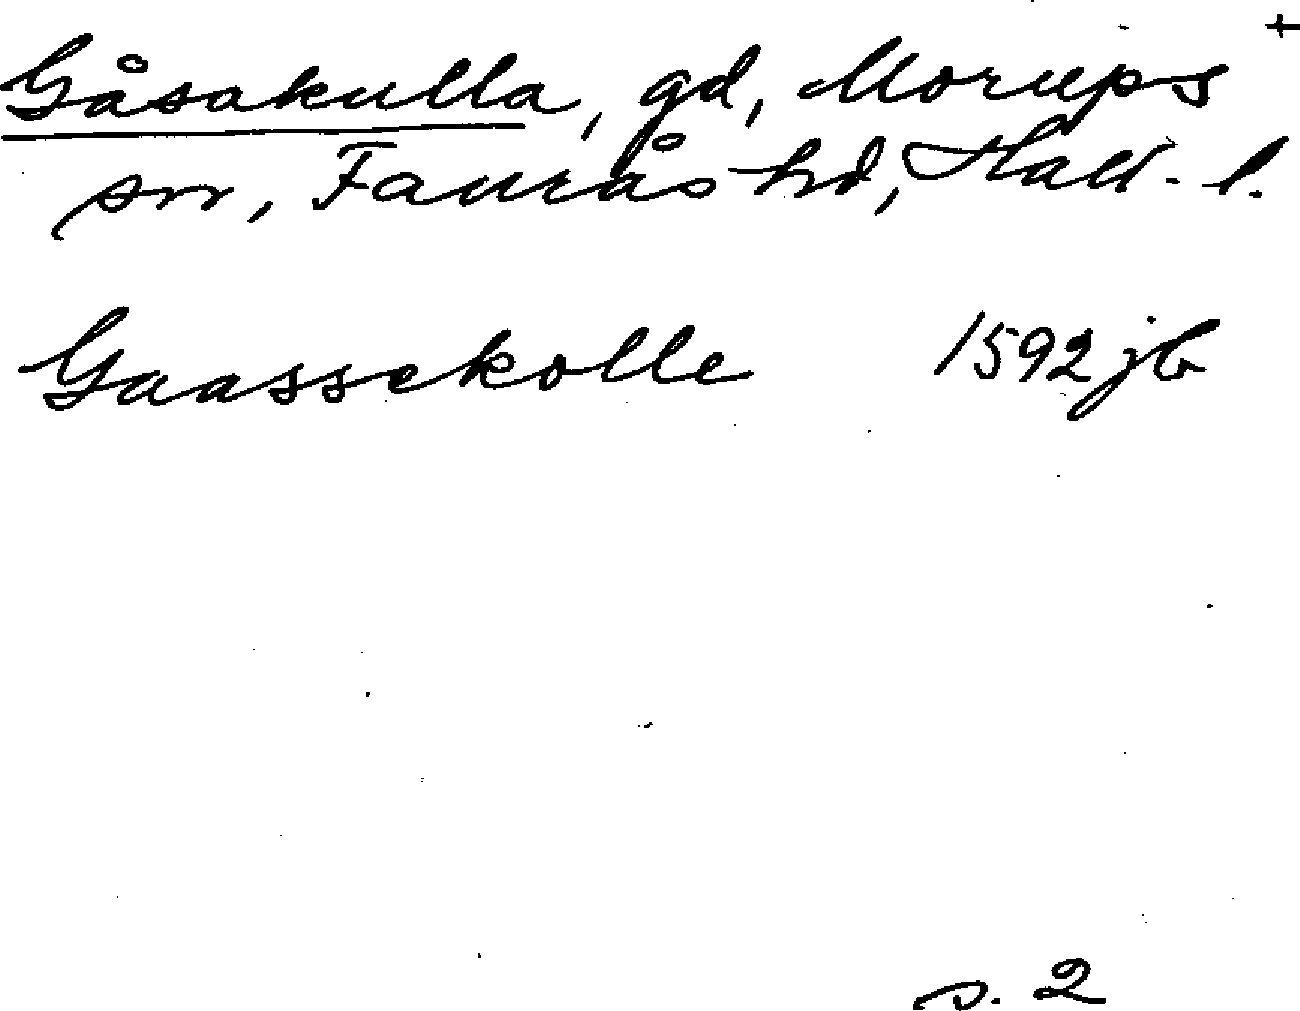 +
Gåsakulla, gd, Morups
sn, Faurås hd, Hall. l.
Gaassekolle 1592 jb
s. 2